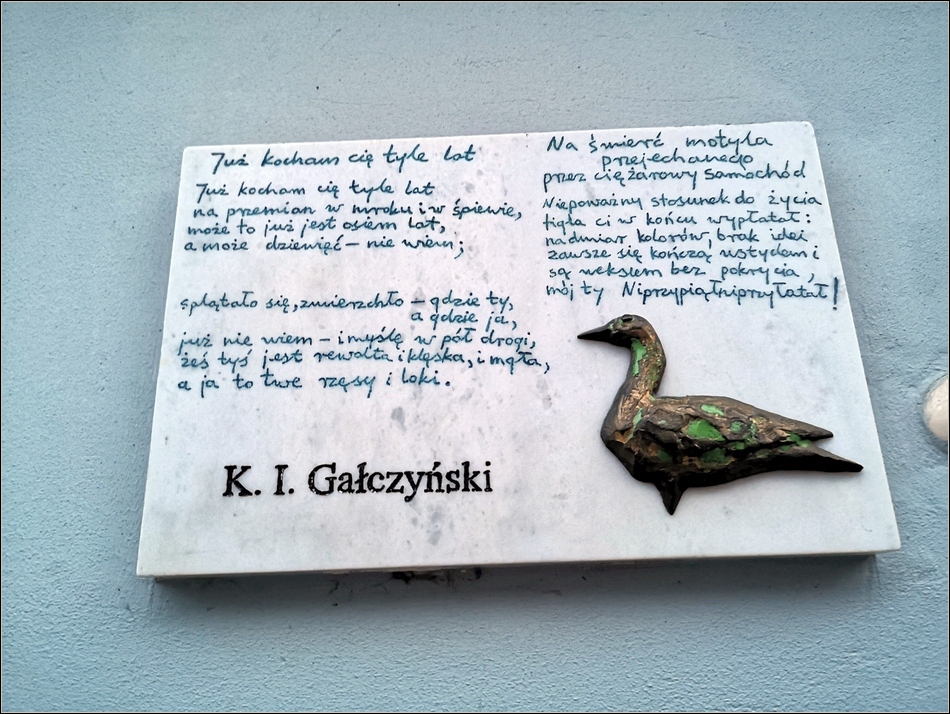 Już kocham cię tyle lat
Już kocham cię tyle lat
na przemian w mroku i w śpiewie,
może to już jest osiem lat,
a może dziewięć – nie wiem;
splątało się, zmierzchło – gdzie ty,
a gdzie ja,
już nie wiem – i myślę w pół drogi,
żeś tyś jest rewolta i klęska, i mgła,
a ja to twe rzęsy i loki.
K. I. Gałczyński
Na śmierć motyla
przejechanego
przez ciężarowy samochód
Niepoważny stosunek do życia
figla ci w końcu wypłatał:
nadmiar kolorów, brak idei
zawsze się kończą wstydem i
są wekslem bez pokrycia,
mój ty Niprzypiąłniprzyłatał!